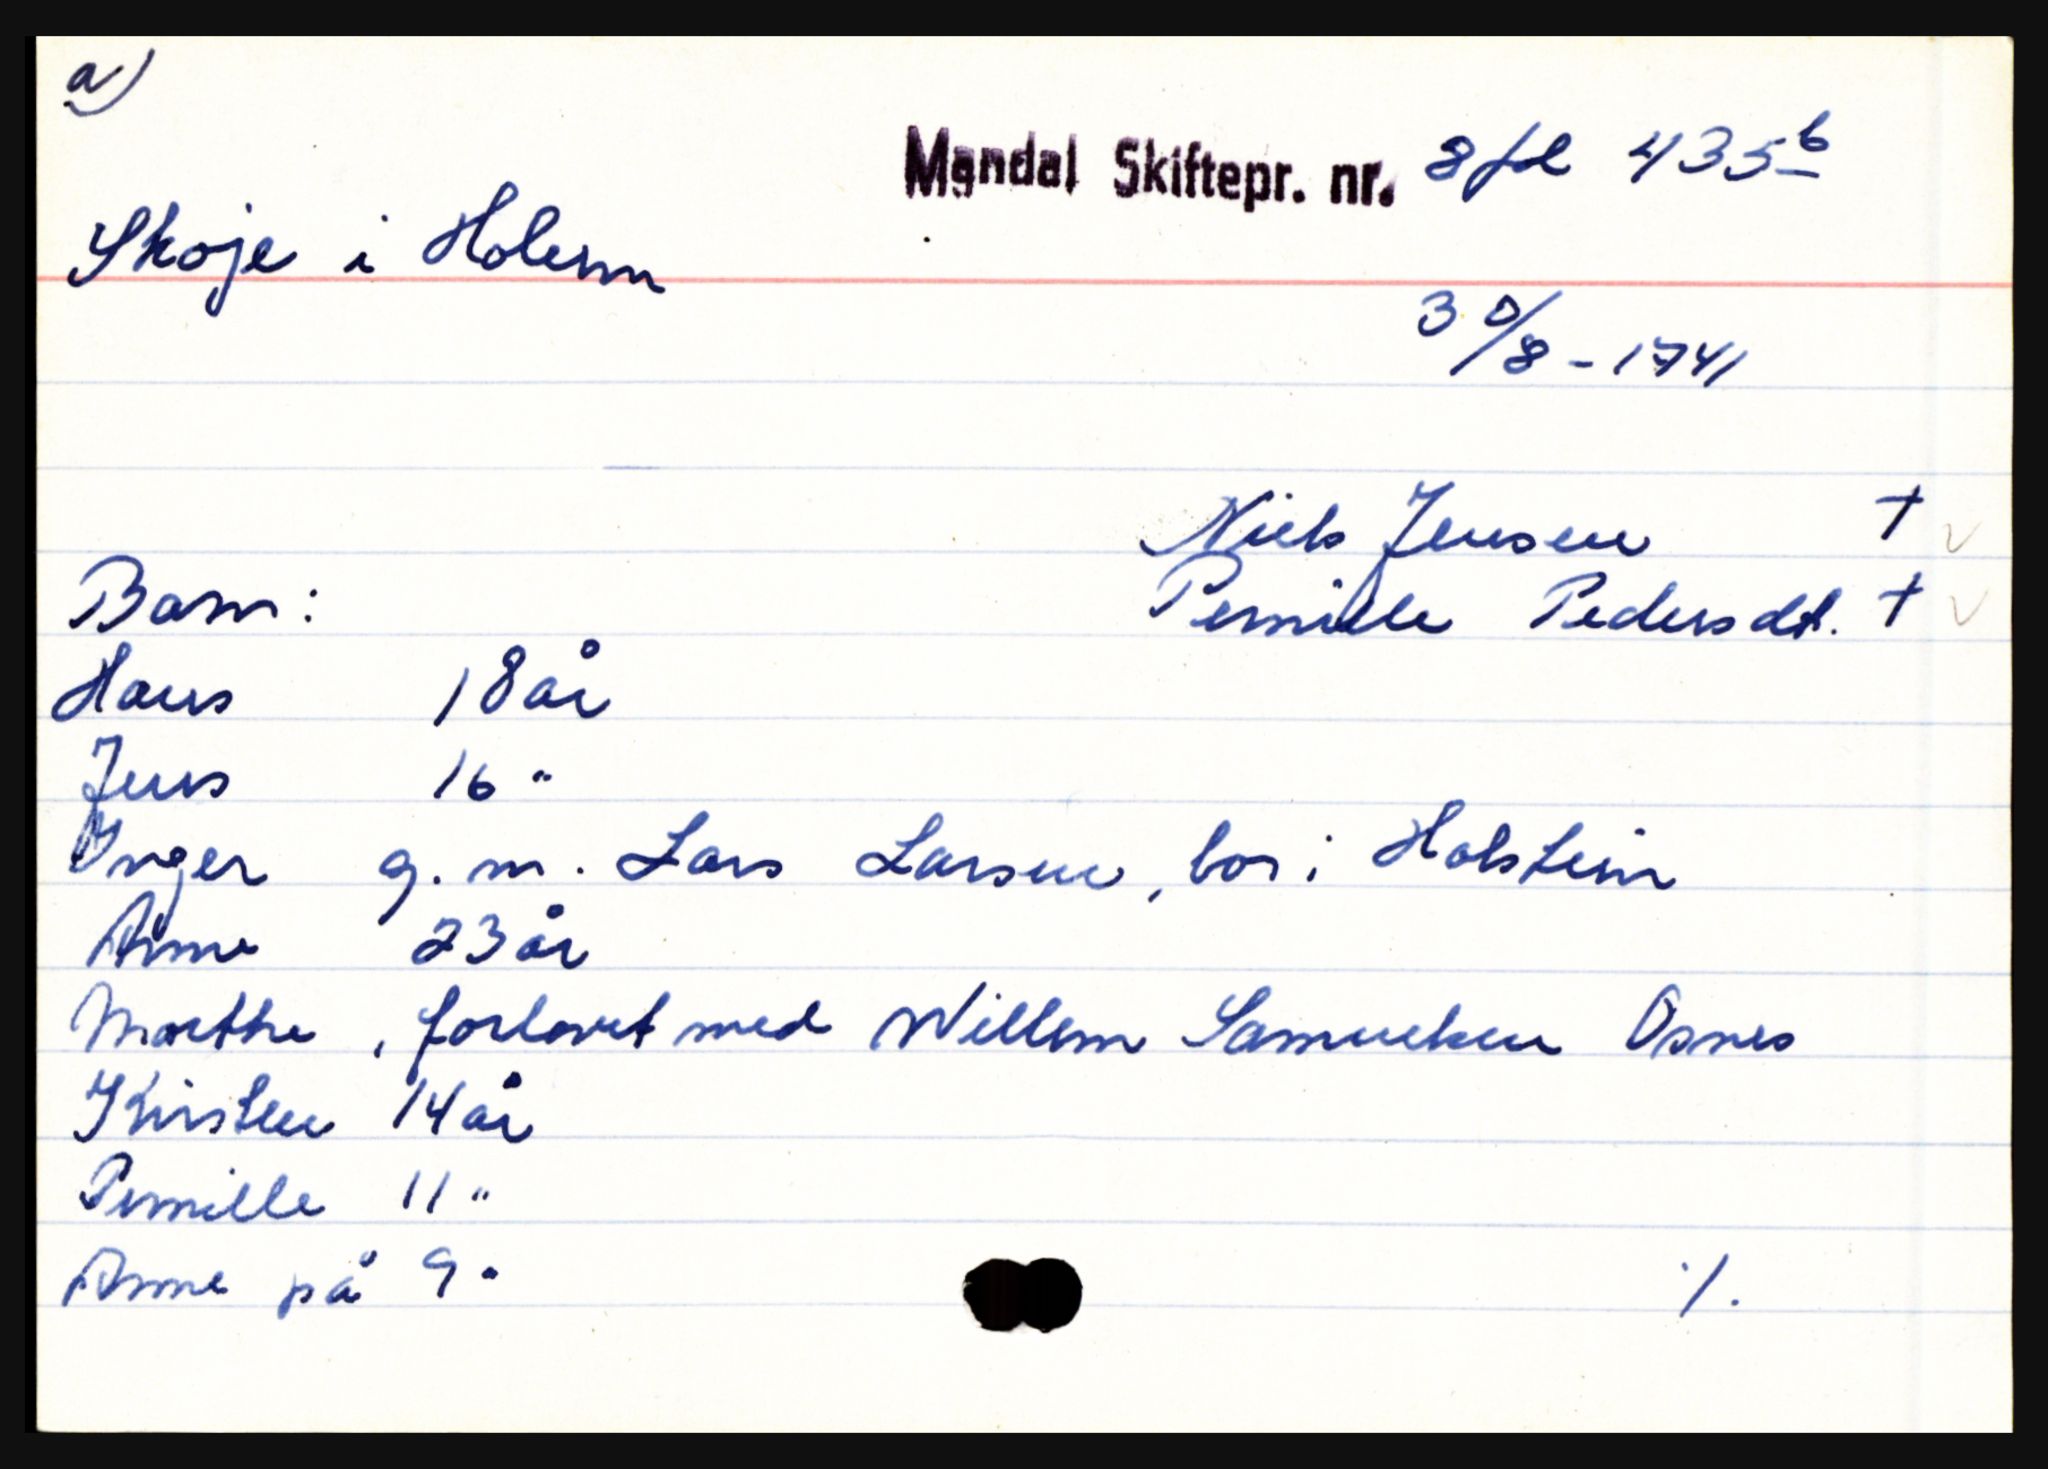 a)
Mandal Skiftepr. nr. 8 fol 435b
Skoje i Holum
30/8 - 1741
Niels Jensen †
Barn: Pernille Pedersdt. †
Hans 18 år
Jens 16 "
Inger g. m. Lars Larsen, bor i Holstein
Anne 23 år
Marthe, forlovet med Willem Samuelsen Osnes
Kirsten 14 år
Pernille 11 "
Anne på 9 "
./.